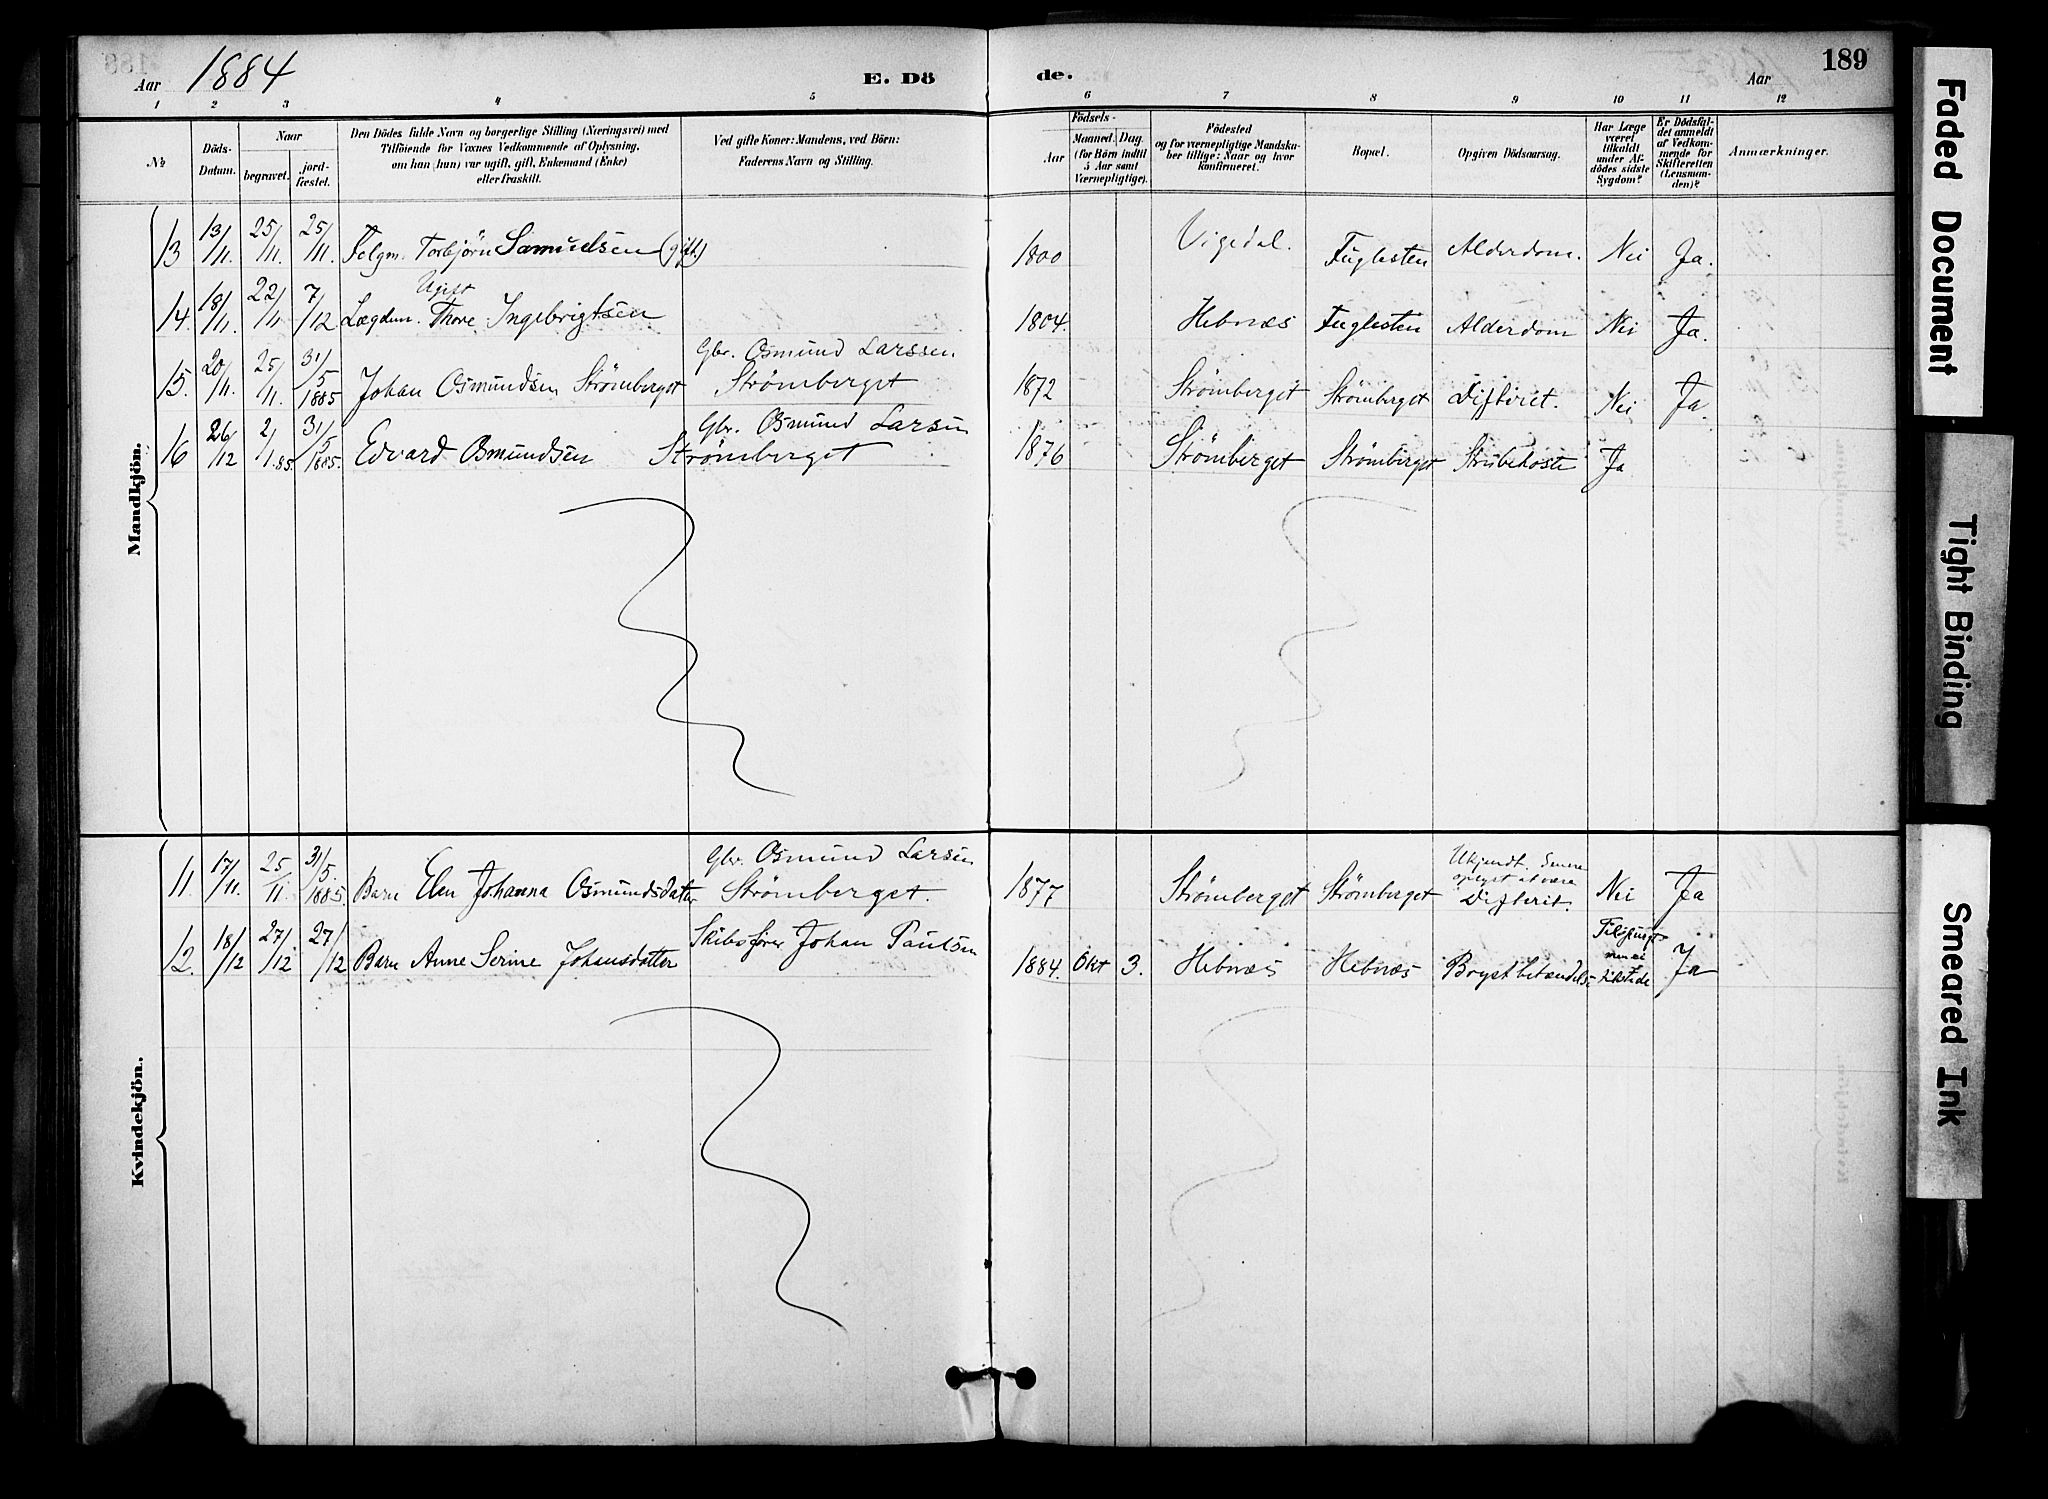 189
Aar 1884 E. Dö de. Aar
1 2 3 4 5 6 7 8 9 10 11 12
№ Döds-Datum. Naar begravet. jord-fæstet. Den Dödes fulde Navn og borgerlige Stilling (Næringsvei) med Tilföiende för Voxnes Vedkommende af Oplysning, om han (hun) var ugift, gift, Enkemand (Enke) eller fraskilt. Ved gifte Koner: Mandens, ved Börn: Faderens Navn og Stilling. Födsels- Aar Maaned. Dag. (for Börn indtil 5 Aar samt Værnepligtige). Födested og for værnepligtige Mandskaber tillige: Naar og hvor konfirmeret. Bopæl. Opgiven Dödsaarsag. Har Læge været tilkaldt under Afdödes sidste Sygdom? Er Dödsfaldet anmeldt af Vedkommende for Skifteretten (Lensmanden)? Anmærkninger.
Mandkjön.
13 13/11. 25/11. 25/11. Følgm. Torbjörn Samuelsen (gift.) 1800 Vigedal. Fuglesten Alderdom. Nei Ja.
Ugift
14. 18/11. 22/11 7/12 Lægdm. Thore Ingebrigtsen 1804. Hebnæs Fuglesten Alderdom Nei Ja.
15. 20/11. 25/11. 31/5 1885 Johan Osmundsen Strømberget Gbr. Osmund Larssen Strømberget 1872 Strømberget Strømberget Difterit. Nei Ja.
16 26/12 2/1.85. 31/5 1885. Edvard Osmundsen Gbr. Osmund Larsen Strømberget 1876 Strømberget Strømberget Strubehoste Ja
Kvindekjön.
11. 17/11. 25/11 31/5. 1885. Barn Elen Johanna Osmundsdatter Gbr. Osmund Larsen Strømberget. 1877 Strømberget Strømberget Ukjendt. Senere oplyst at være Difterit. Nei Ja
12. 18/12 27/12 27/12 Barn Anne Serine Johansdatter Skibsfører Johan Paulsen 1884. Okt 3. Hebnæs Hebnæs Brystbetændelse Ja
Faded Document
Tight Binding
Smeared Ink